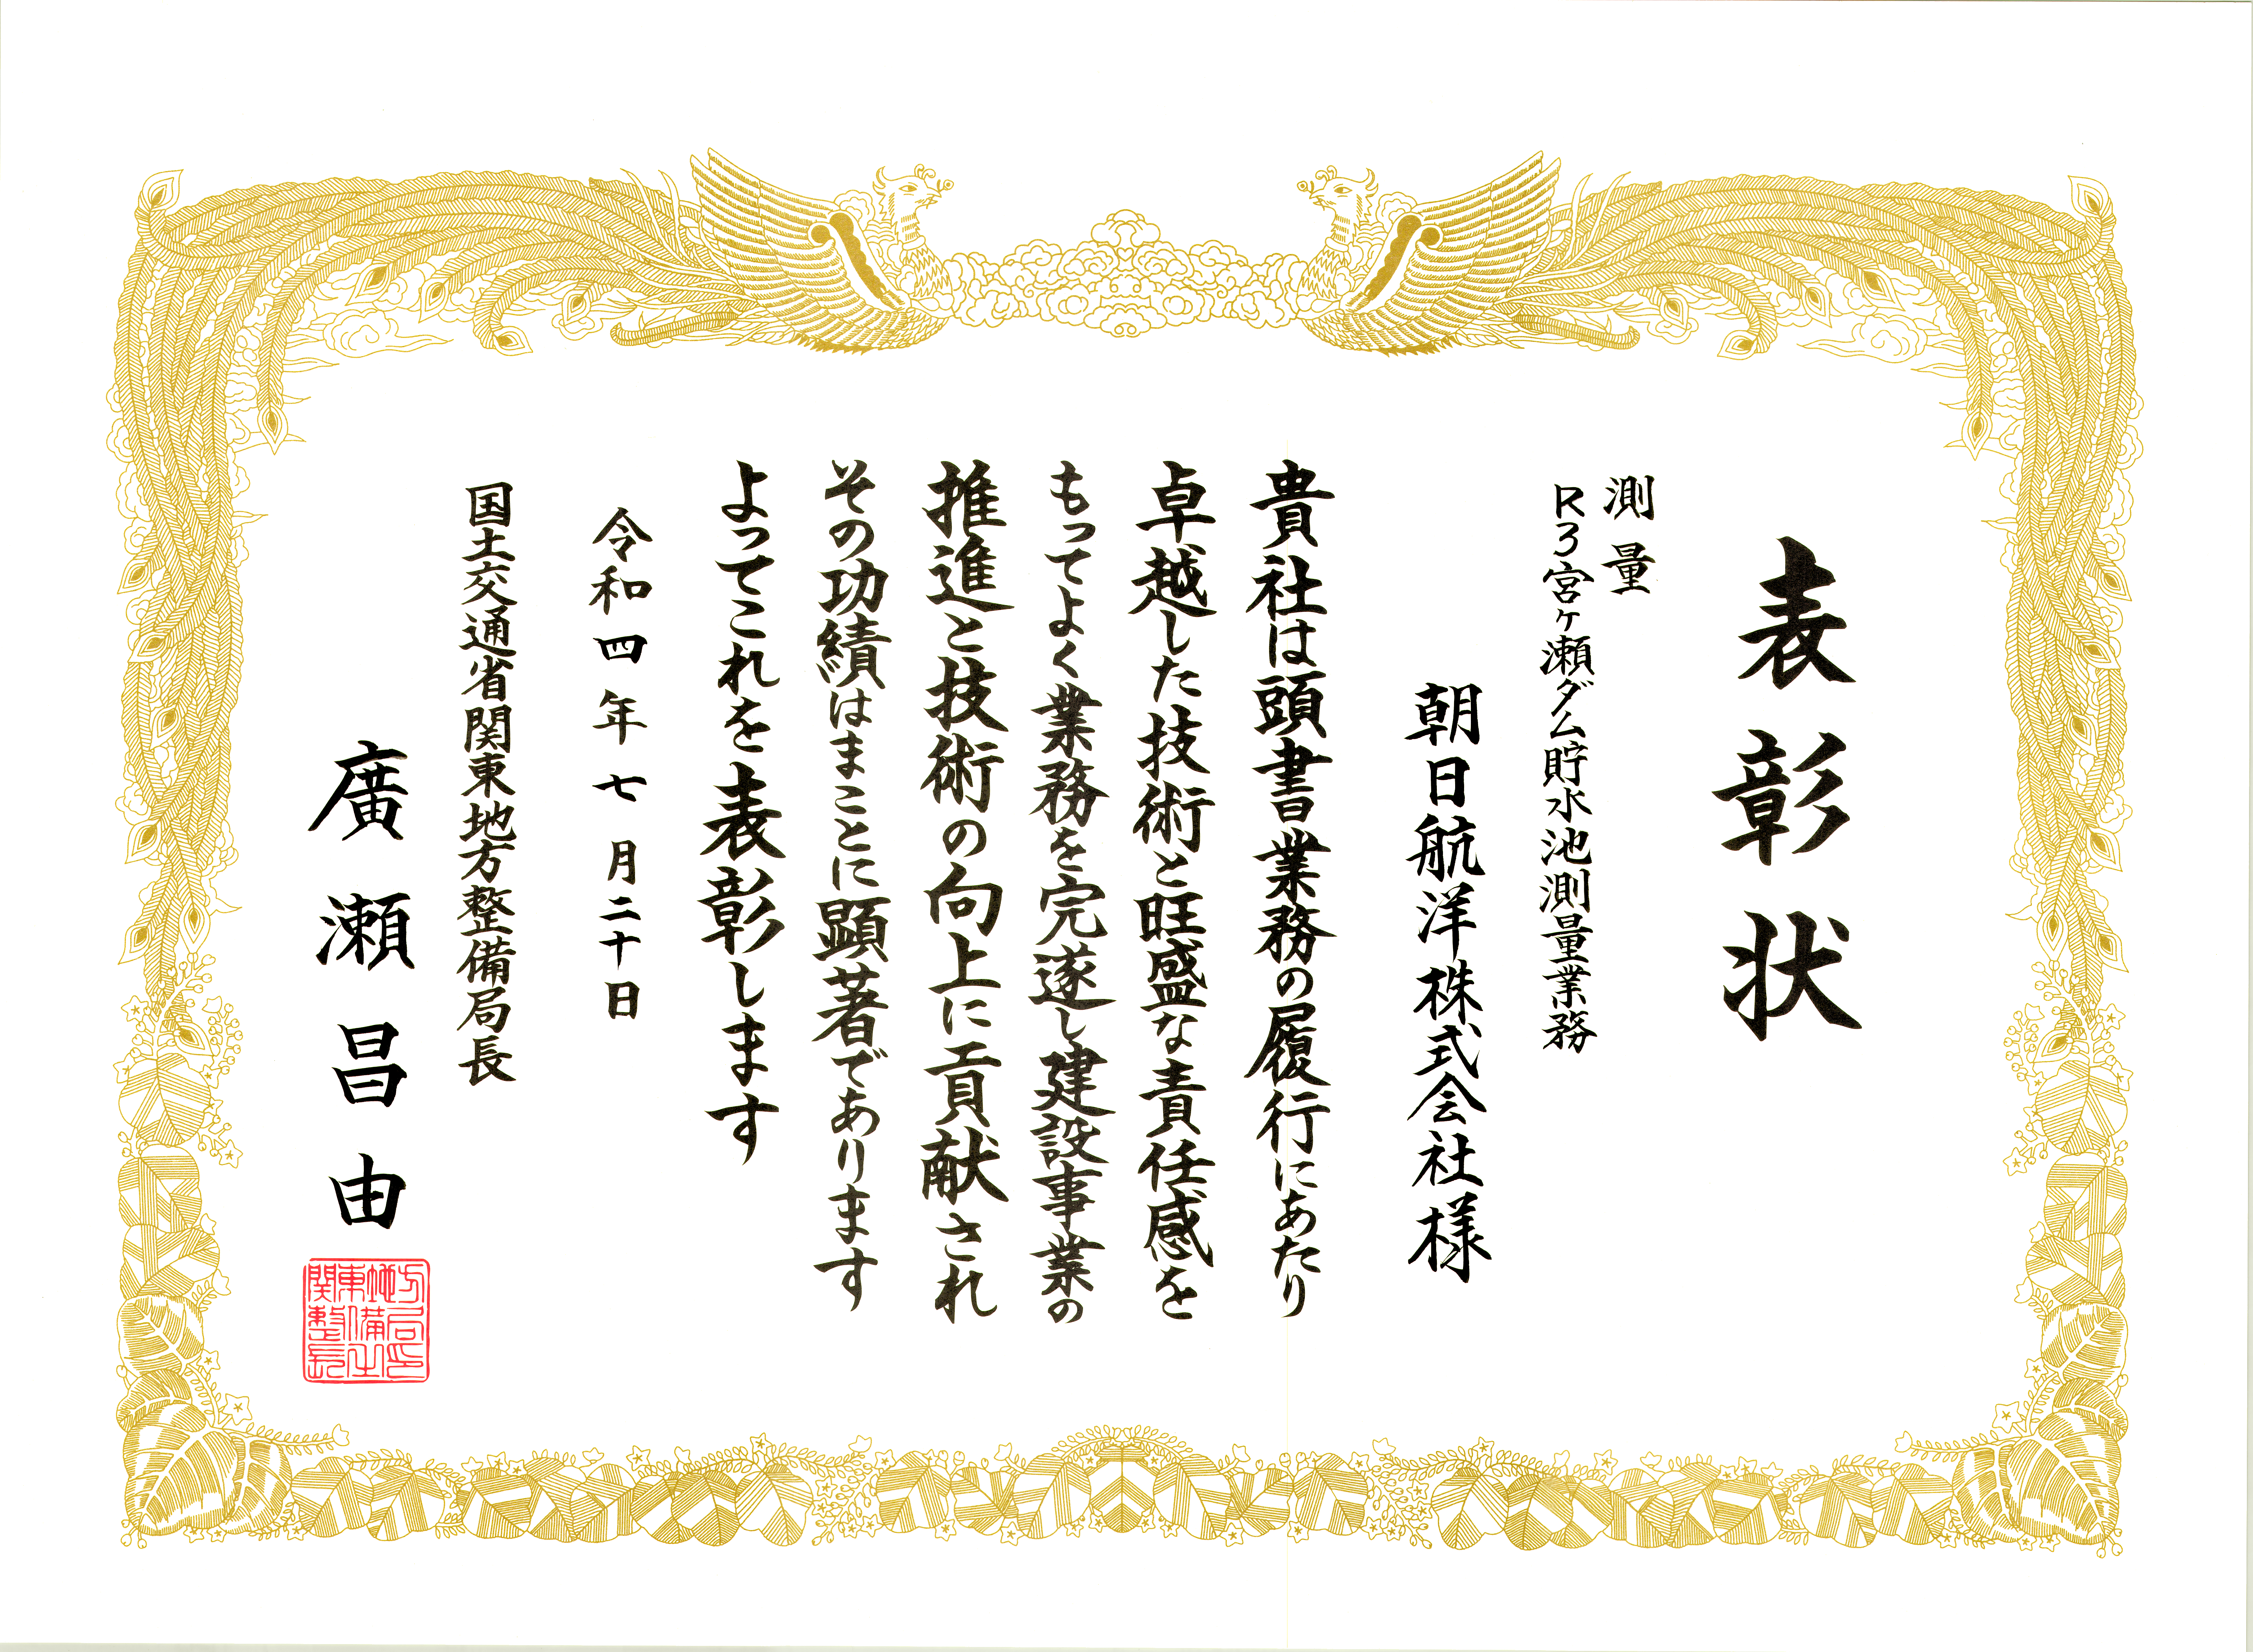 表彰状
測量
R3宮ヶ瀬ダム貯水池測量業務
朝日航洋株式会社様
貴社は頭書業務の履行にあたり
卓越した技術と旺盛な責任感を
もってよく業務を完遂し建設事業の
推進と技術の向上に貢献され
その功績はまことに顕著であります
よってこれを表彰します
令和四年七月二十日
国土交通省関東地方整備局長
廣瀬昌由
関東地方
整備局
長之印